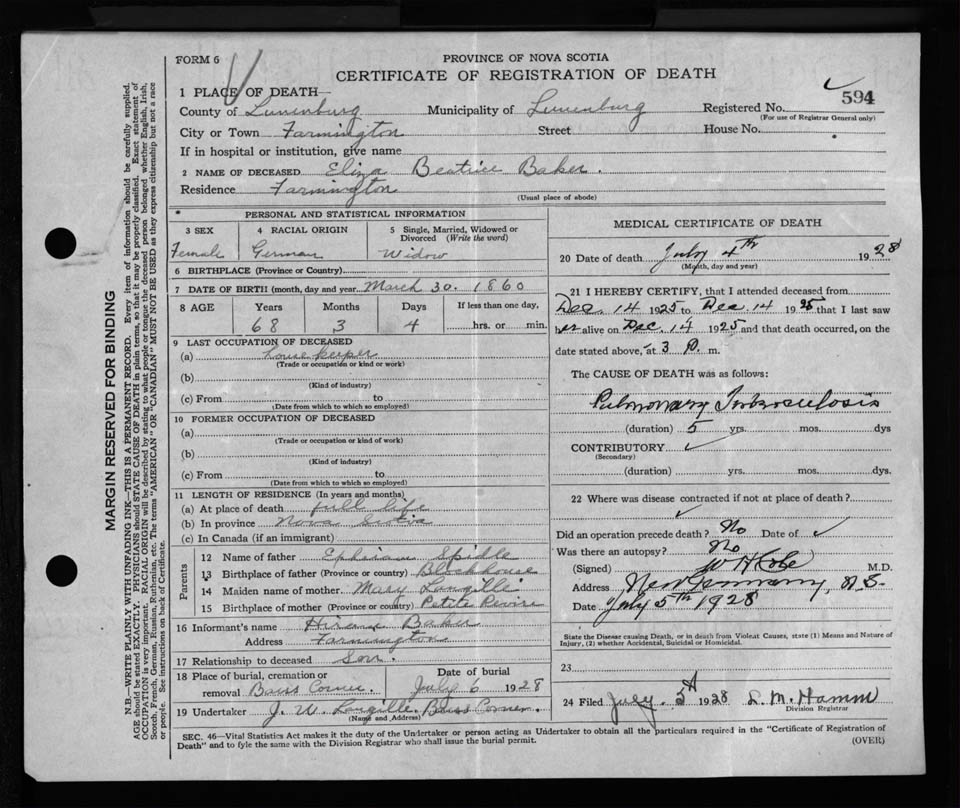 FORM 6
PROVINCE OF NOVA SCOTIA
CERTIFICATE OF REGISTRATION OF DEATH
1 PLACE OF DEATH—
County of Lunenburg Municipality of Lunenburg Registered No. 594
(For use of Registrar General only)
City or Town Farmington Street House No.
If in hospital or institution, give name
2 NAME OF DECEASED Eliza Beatrice Baker.
Residence Farmington
(Usual place of abode)
PERSONAL AND STATISTICAL INFORMATION
3 SEX 4 RACIAL ORIGIN 5 Single, Married, Widowed or Divorced (Write the word)
Female German Widow
6 BIRTHPLACE (Province or Country)
7 DATE OF BIRTH (month, day and year March 30. 1860
8 AGE Years Months Days If less than one day,
68 3 4 hrs. or min.
9 LAST OCCUPATION OF DECEASED
(a) housekeeper
(Trade or occupation or kind or work)
(b)
(Kind of industry)
(c) From to
(Date from which to which so employed)
10 FORMER OCCUPATION OF DECEASED
(a)
(Trade or occupation or kind of work)
(b)
(Kind of industry)
(c) From to
(Date from which to which so employed)
11 LENGTH OF RESIDENCE (In years and months)
(a) At place of death full life
(b) In province Nova Scotia
(c) In Canada (if an immigrant)
Parents
12 Name of father Ephriam Spidle
13 Birthplace of father (Province or country) Blockhouse
14 Maiden name of mother Mary Langille
15 Birthplace of mother (Province or country) Petite Revire
16 Informant's name Hiram Baker
Address Farmington
17 Relationship to deceased Son.
18 Place of burial, cremation or removal Barss Corner. Date of burial July 6 1928
19 Undertaker J. W. Langille Barss Corner.
(Name and Address)
MEDICAL CERTIFICATE OF DEATH
20 Date of death July 4th 1928
(Month, day and year)
21 I HEREBY CERTIFY, that I attended deceased from
Dec. 14 1925 to Dec. 14 1925 that I last saw
her alive on Dec. 14 1925 and that death occurred, on the
date stated above, at 3 P. m.
The CAUSE OF DEATH was as follows:
Pulmonary Tuberculosis
(duration) 5 yrs. mos. dys
CONTRIBUTORY
(Secondary)
(duration) yrs. mos. dys.
22 Where was disease contracted if not at place of death?
Did an operation precede death? No Date of
Was there an autopsy? No
(Signed) W H Cole M.D.
Address New Germany, N.S.
Date July 5th 1928
State the Disease causing Death, or in death from Violent Causes, state (1) Means and Nature of
Injury, (2) whether Accidental, Suicidal or Homicidal.
23
24 Filed July. 5th 1928 L. M. Hamm
Division Registrar
SEC. 46—Vital Statistics Act makes it duty of the Undertaker or person acting as Undertaker to obtain all the particulars required in the "Certificate of Registration of
Death" and to fyle the same with the Division Registrar who shall issue the burial permit.
(OVER)
MARGIN RESERVED FOR BINDING
N.B.—WRITE PLAINLY WITH UNFADING INK—THIS IS A PERMANENT RECORD. Every item of information should be carefully supplied.
AGE should be stated EXACTLY. PHYSICIANS should STATE CAUSE OF DEATH in plain terms, so that it may be properly classified. Exact statement of
OCCUPATION is very important. RACIAL ORIGIN will be described by stating to what people or tongue the deceased person belonged whether English, Irish,
Scotch, French, German, Russian, Ruthenian, etc. The terms "AMERICAN" or "CANADIAN" MUST NOT BE USED as they express citizenship but not a race
or people. See instructions on back of Certificate.